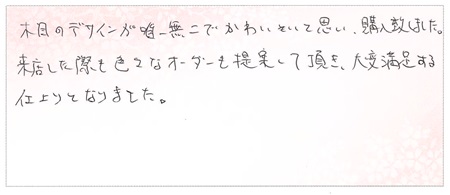 木目のデザインが唯一無二でかわいいと思い、購入致しました。
来店した際も色々なオーダーも提案して頂き、大変満足する
仕上りとなりました。